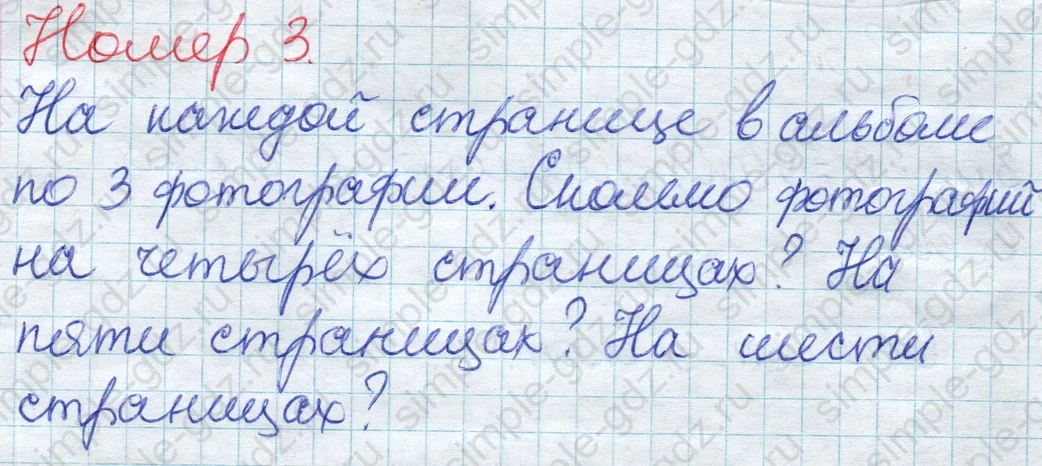 Номер 3.
На каждой странице в альбоме
по 3 фотографии. Сколько фотографий
на четырёх страницах? На
пяти страницах? На шести
страницах?